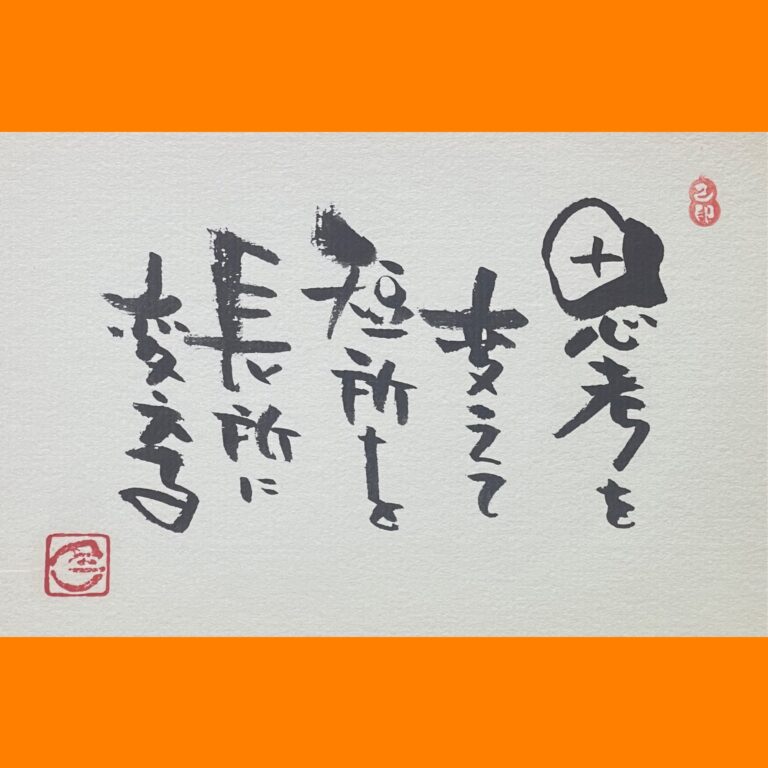 思考を
変えて
短所を
長所に
変える